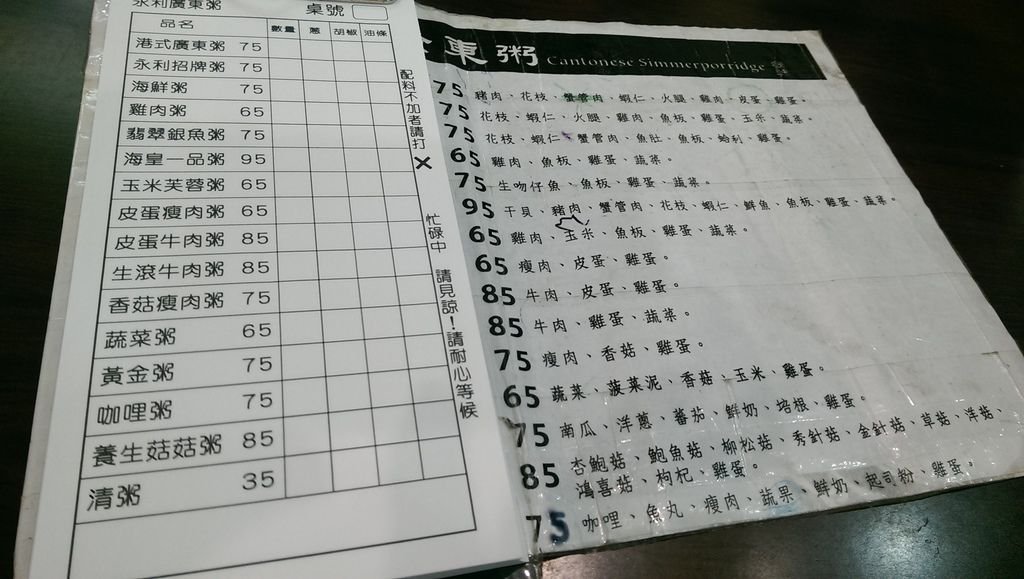 永利廣東粥 桌號
品名 數量 蔥 胡椒 油條
港式廣東粥 75
永利招牌粥 75
海鮮粥 75
雞肉粥 65
翡翠銀魚粥 75
海皇一品粥 95
玉米芙蓉粥 65
皮蛋瘦肉粥 65
皮蛋牛肉粥 85
生滾牛肉粥 85
香菇瘦肉粥 75
蔬菜粥 65
黃金粥 75
咖哩粥 75
養生菇菇粥 85
清粥 35
配料不加者請打✕
忙碌中 請見諒!請耐心等候
東粥 Cantonese Simmerporridge
75 豬肉、花枝、蟹管肉、蝦仁、火腿、雞肉、皮蛋、雞蛋。
75 花枝、蝦仁、火腿、雞肉、魚板、雞蛋、玉米、蔬菜。
75 花枝、蝦仁、蟹管肉、魚肚、魚板、蛤利、雞蛋。
65 雞肉、魚板、雞蛋、蔬菜。
75 生吻仔魚、魚板、雞蛋、蔬菜。
95 干貝、豬肉、蟹管肉、花枝、蝦仁、鮮魚、魚板、雞蛋、蔬菜。
65 雞肉、玉米、魚板、雞蛋、蔬菜。
65 瘦肉、皮蛋、雞蛋。
85 牛肉、皮蛋、雞蛋。
85 牛肉、雞蛋、蔬菜。
75 瘦肉、香菇、雞蛋。
65 蔬菜、菠菜泥、香菇、玉米、雞蛋。
75 南瓜、洋蔥、蕃茄、鮮奶、培根、雞蛋。
85 杏鮑菇、鮑魚菇、柳松菇、秀針菇、金針菇、草菇、洋菇、
鴻喜菇、枸杞、雞蛋。
75 咖哩、魚丸、瘦肉、蔬果、鮮奶、起司粉、雞蛋。